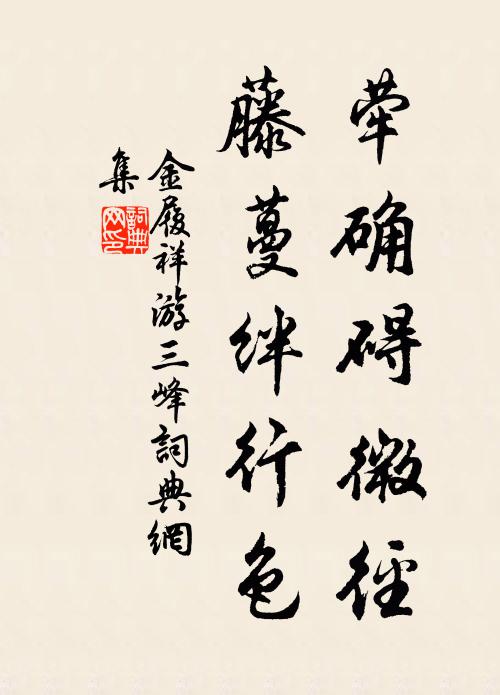 荦确碍微径
藤蔓绊行色
金履祥游三峰詞典網
集
詞典
网印